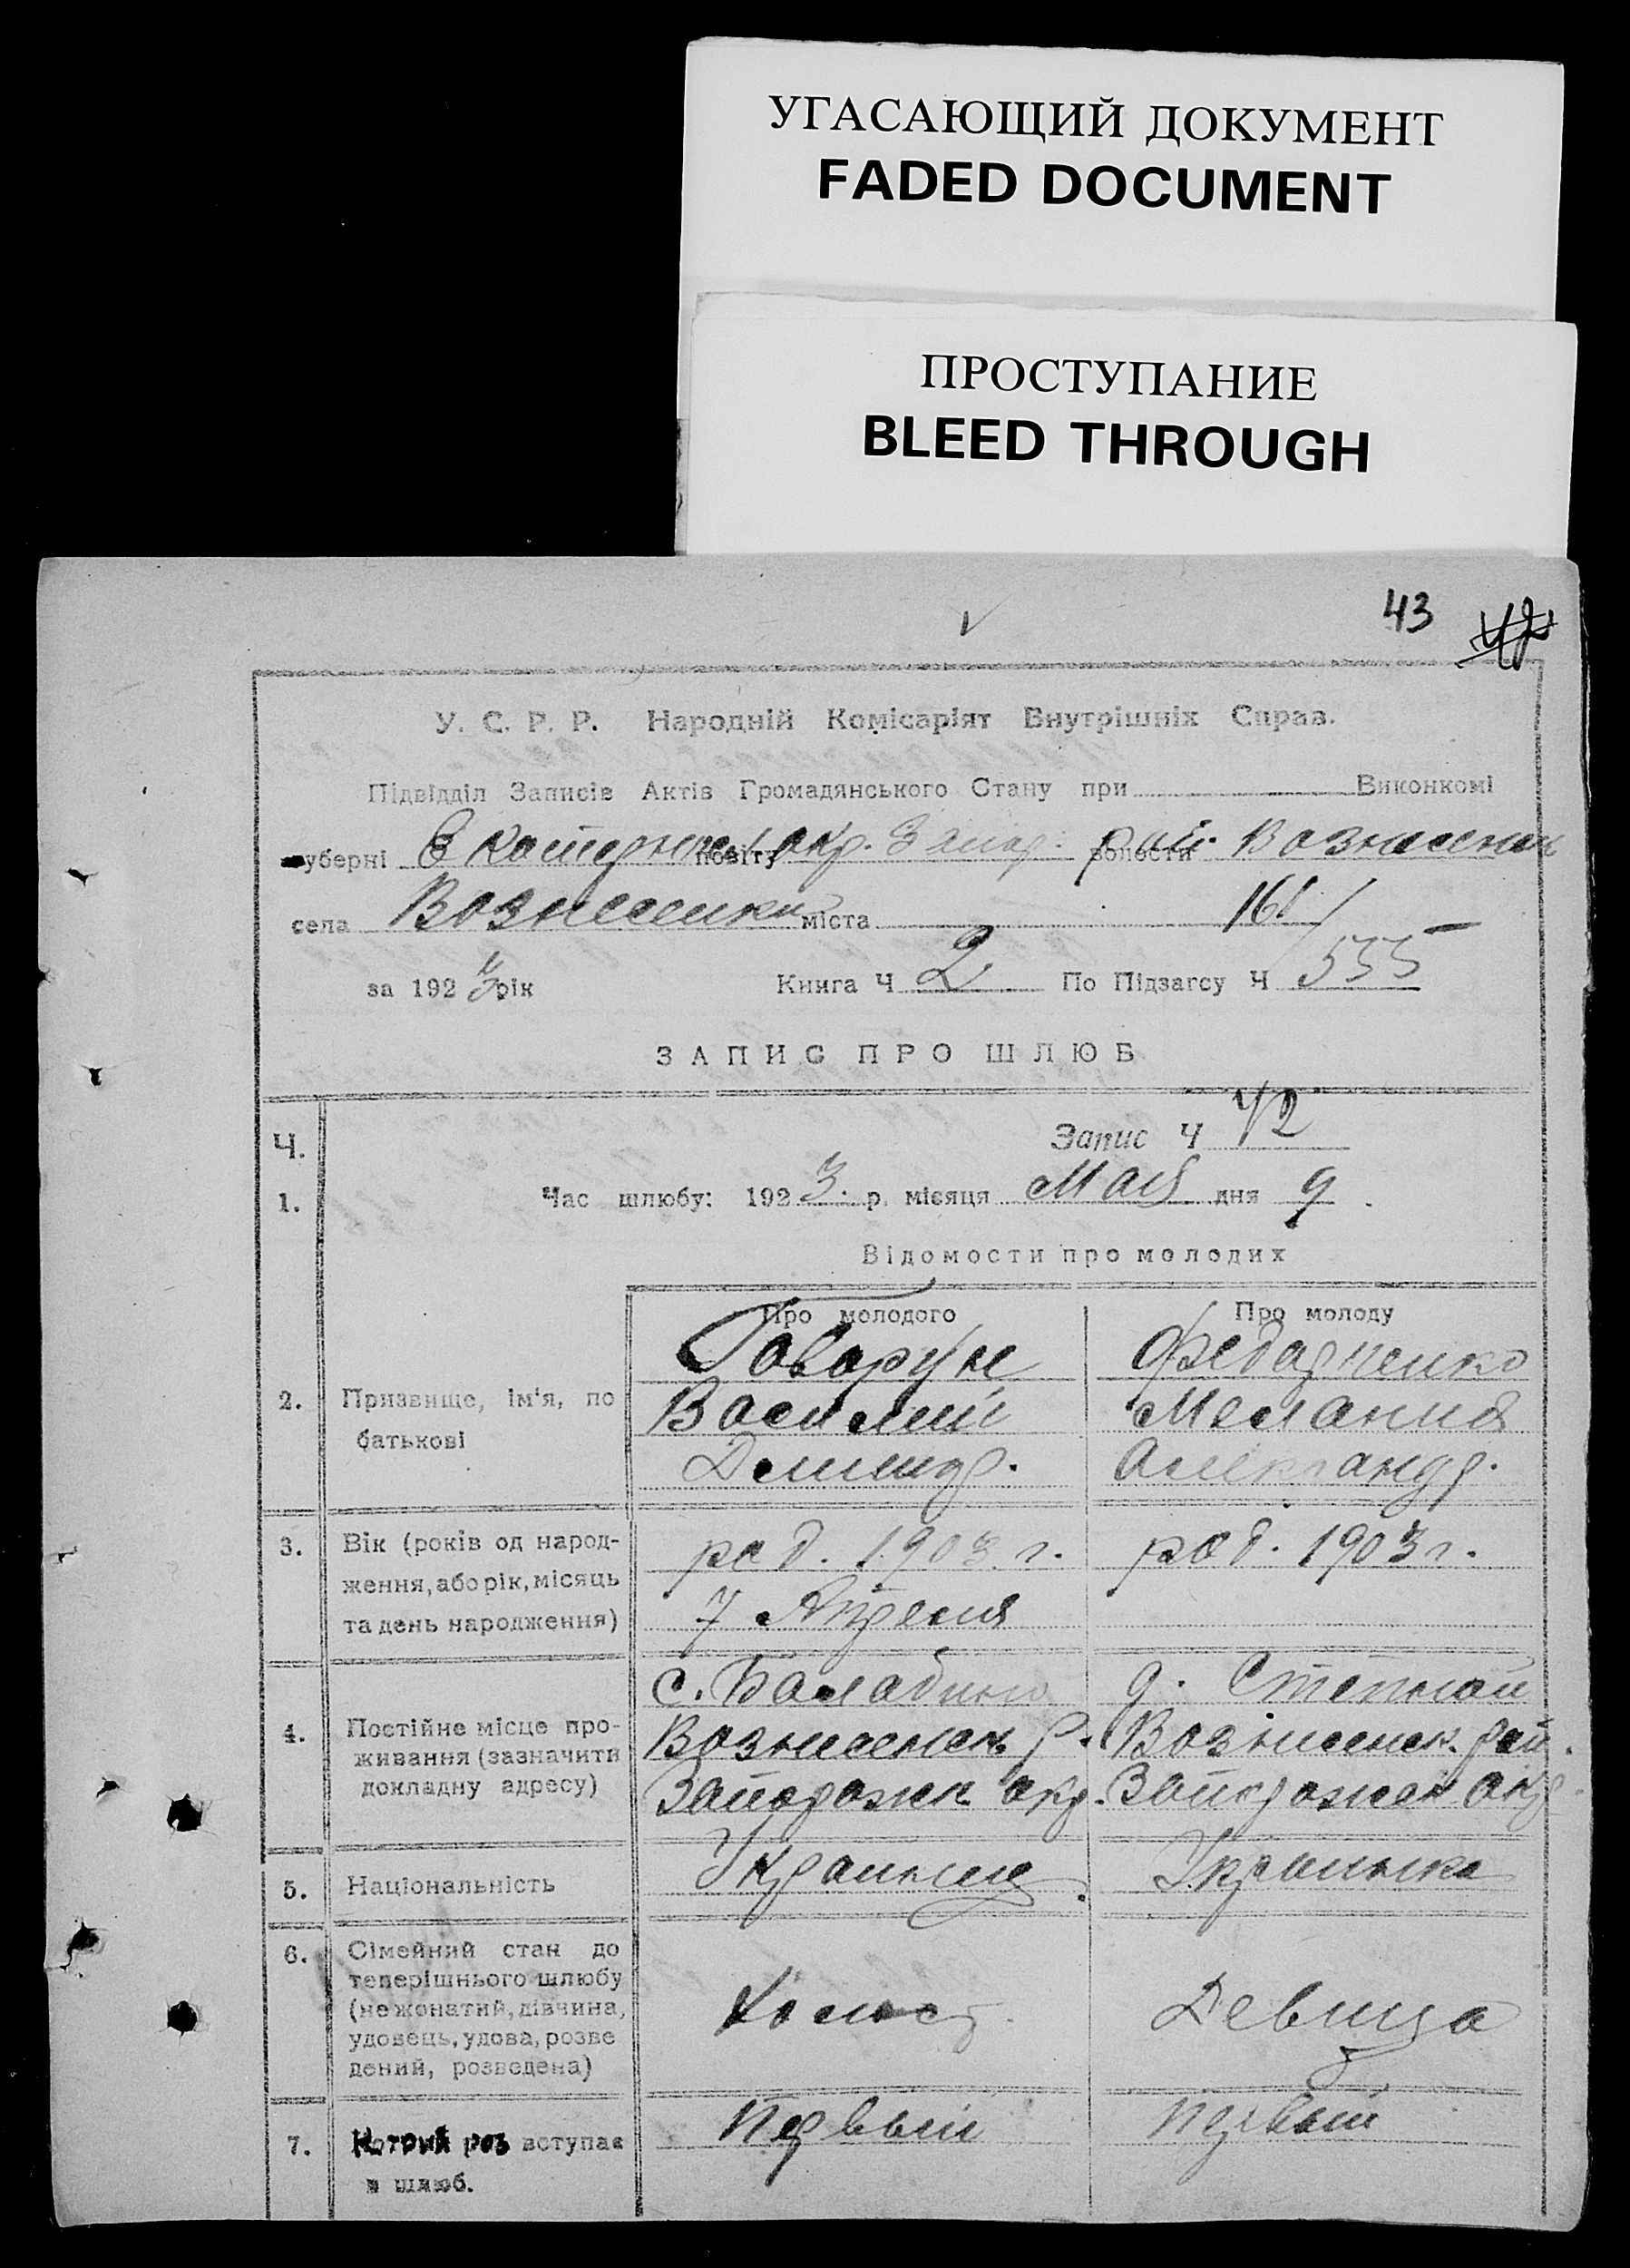 УГАСАЮЩИЙ ДОКУМЕНТ
FADED DOCUMENT
ПРОСТУПАНИЕ
BLEED THROUGH
43
У. С. Р. Р. Народній Комісаріят Внутрішніх Справ.
Підвідділ Записів Актів Громадянського Стану при Виконкомі
губерні Екатерин. повіту окр. Запор. волости рай. Вознесенск
села Вознесенки міста
161
за 1923 рік Книга Ч 2 По Підзагсу Ч 555
ЗАПИС ПРО ШЛЮБ
Ч. Запис Ч 42
1. Час шлюбу: 1923 р. місяця Мая дня 9
Відомости про молодих
Про молодого Про молоду
Говорун Федорченко
2. Призвище, ім'я, по батькові Василий Мелания
Александр.
3. Вік (років од народження, або рік, місяць та день народження) род. 1903 г. род. 1903 г.
7 Апреля
с. Балабино д. Степной
4. Постійне місце проживання (зазначити докладну адресу) Вознесенск. р. Вознесенск. рай.
Запорожск окр. Запорожск окр.
5. Національність Украинец Украинка
6. Сімейний стан до теперішнього шлюбу (не жонатий, дівчина, удовець, удова, розведений, розведена) Холост Девица
7. Котрий раз вступає в шлюб. Первый Первый